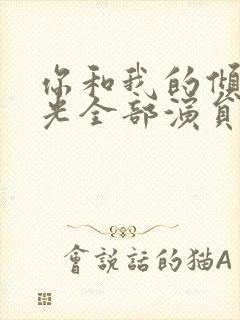 你和我的倾
光全部演员
會説話的猫A